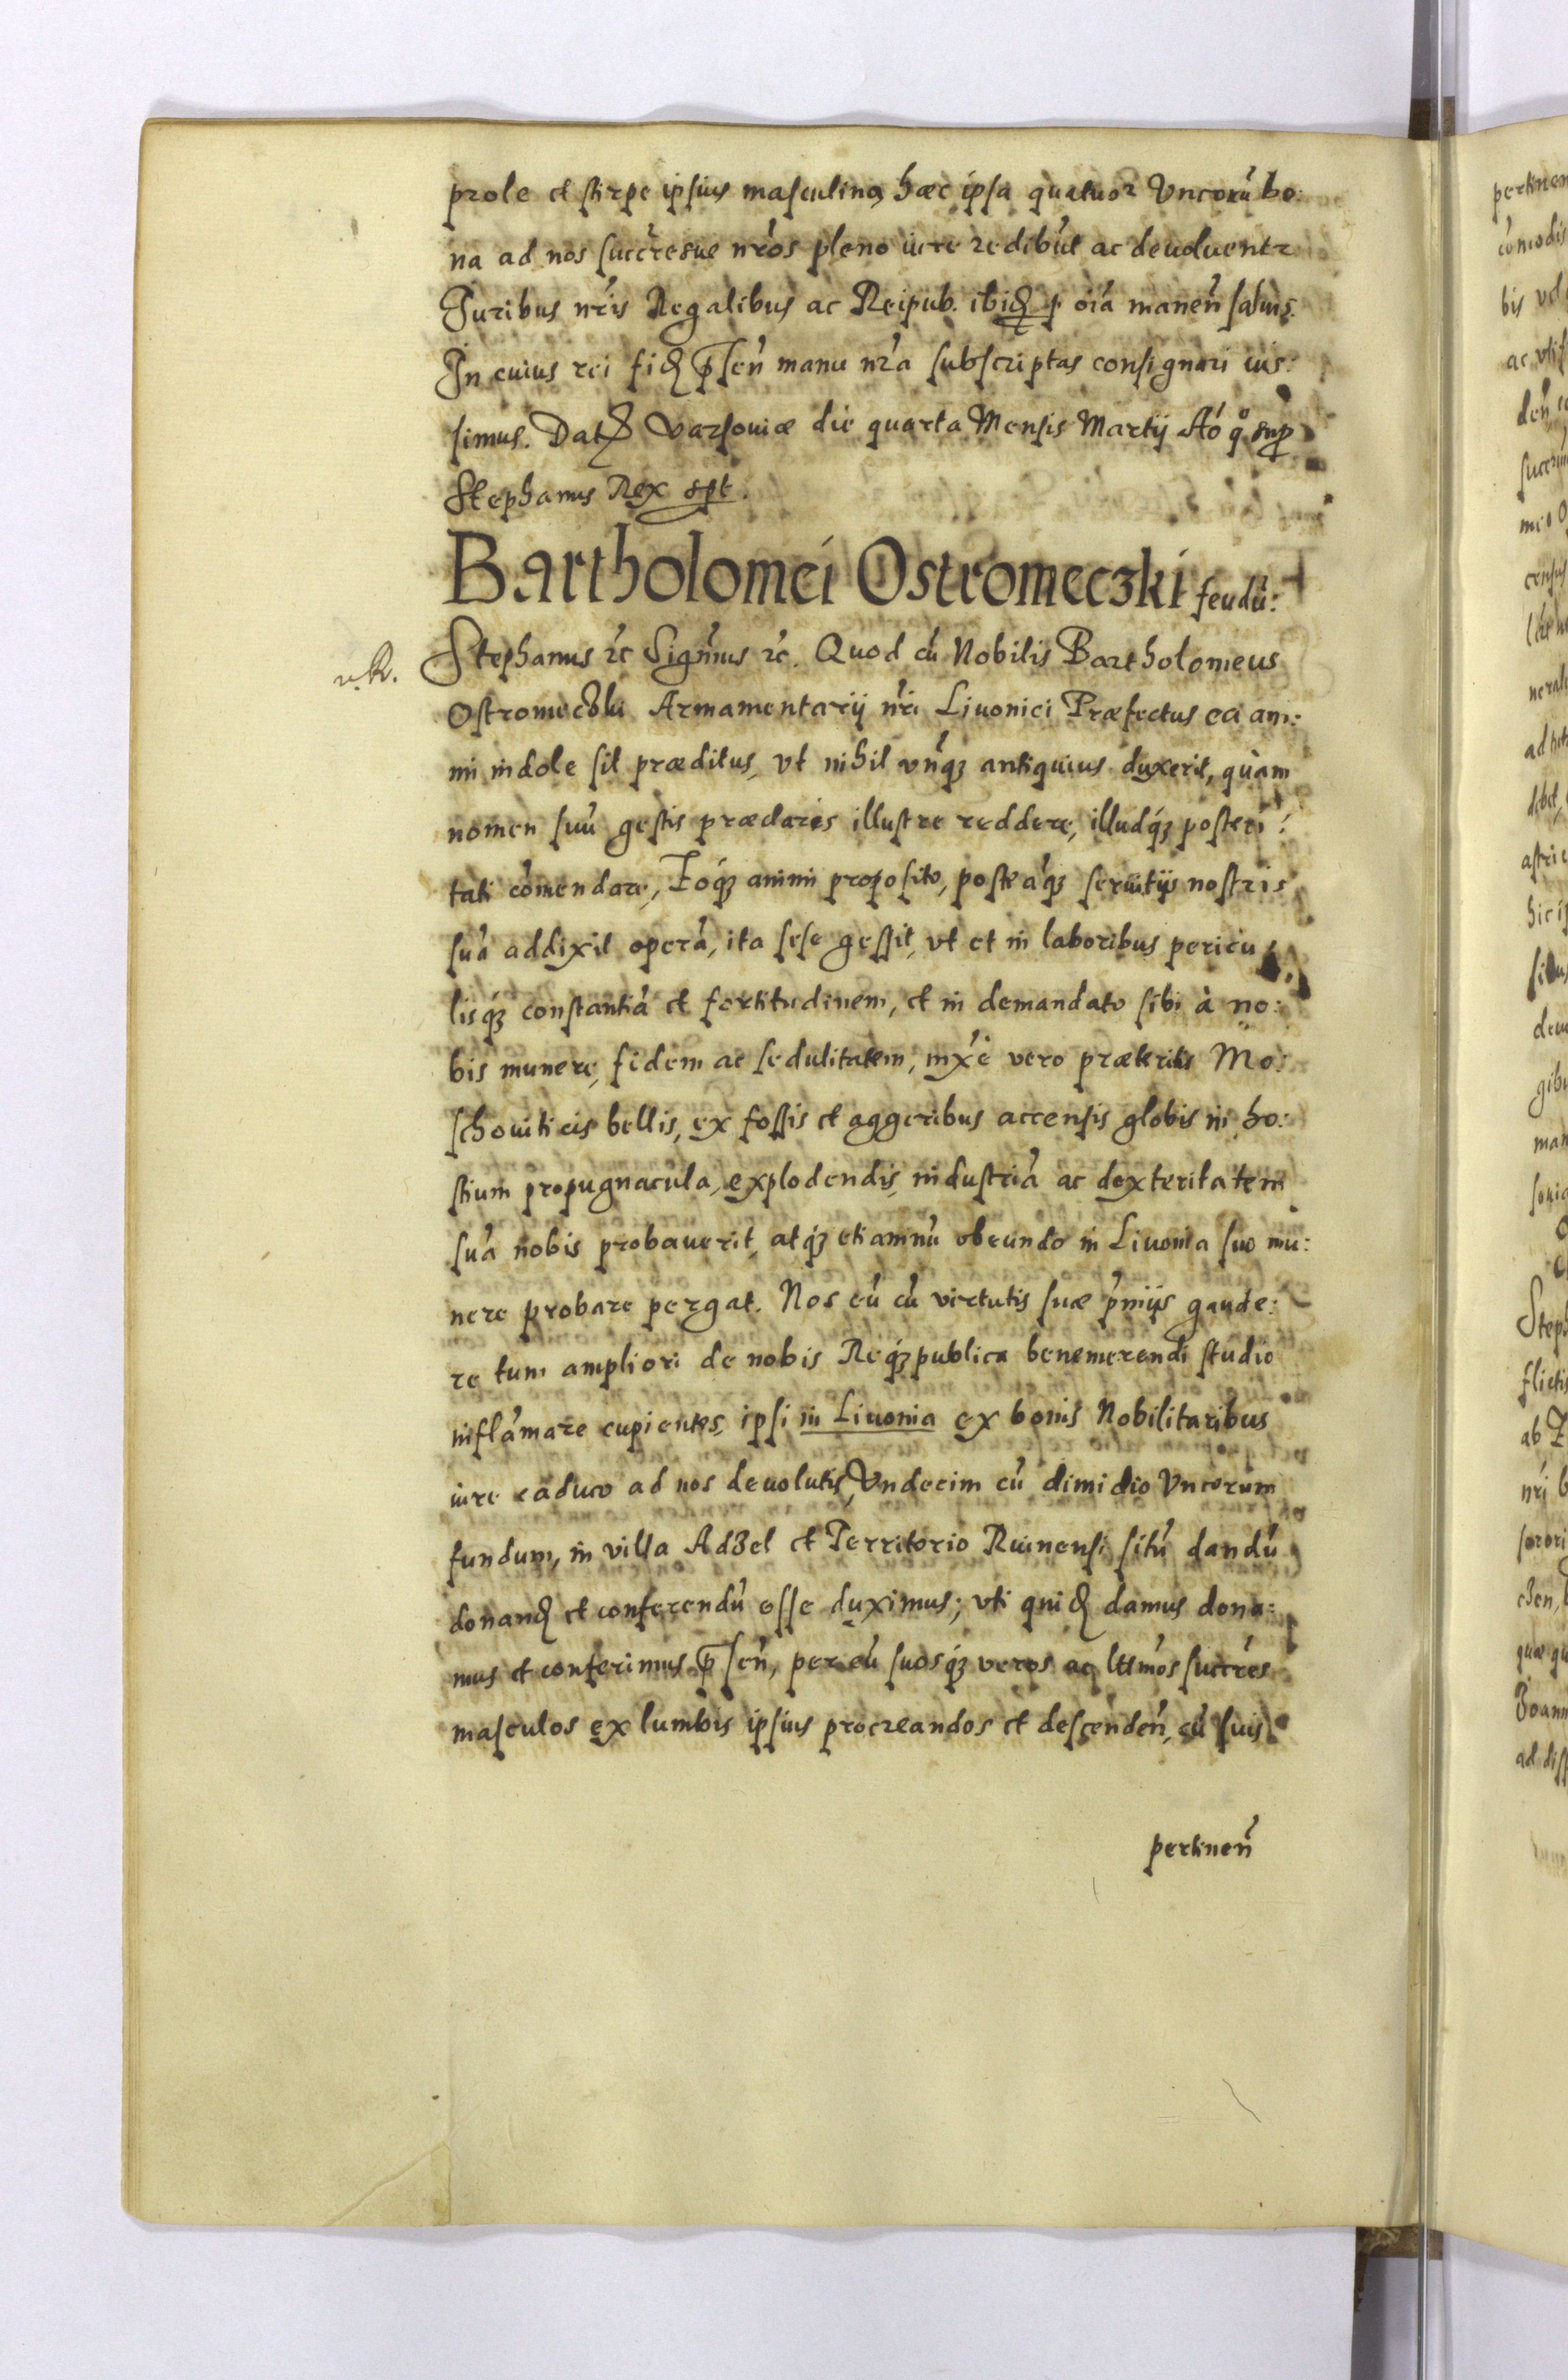 prole et stirpe ipsius masculina, hæc ipsa quatuor Vncorũ bo:
na ad nos succr̃esue nr̃os pleno iure redibũt ac deuoluentr
Iuribus nr̃is Regalibus ac Reipub. ibiđ p oĩa maneñ saluis.
In cuius rei fiđ p̃señ manu nr̃a subscriptas consignari ius:
simus. Dat Varsouiæ die quarta Mensis Martij Aõ qͦ sup
Stephanus Rex spt.
Bartholomei Ostromeczki feudũ:
v. R.
Stephanus ꝛc Sigñmus ꝛc. Quod cũ Nobilis Bartholomeus
Ostromeczki Armamentarij nr̃i Liuonici Præfectus ea ani:
mi indole sit præditus, vt nihil vñqȝ antiquius duxerit, quàm
nomen suũ gestis præclaris illustre reddere, illudqȝ posteri:
tati cõmendare, Eoqȝ animi proposito, posteãqȝ seruitijs nostris
suã addixit operã, ita sese gessit, vt et in laboribus pericu
lisqȝ constantiã et fortitudinem, et in demandato sibi à no:
bis munere, fidem ac sedulitatem, mx̃e vero præteritis Mo:
schouiticis bellis, ex fossis et aggeribus accensis globis in ho:
stium propugnacula, explodendis, industriã ac dexteritatem
suã nobis probauerit, atqȝ etiamnũ obeundo in Liuonia suo mu:
nere probare pergat. Nos eũ cũ virtutis suæ p̃mijs gaude:
re tum ampliori de nobis Reqȝpublica benemerendi studio
inflãmare cupientes, ipsi in Liuonia ex bonis Nobilitaribus
iure caduco ad nos deuolutis, Vndecim cũ dimidio Vncorum
fundum, in villa Adzel et Territorio Ruinensi sitũ dandũ
donanđ et conferendũ esse duximus; vti quiđ damus dona:
mus et conferimus p̃señ, per eũ suosqȝ veros ac lttm̃os succr̃es
masculos ex lumbis ipsius procreandos et descendeñ, cũ suis
pertineñ